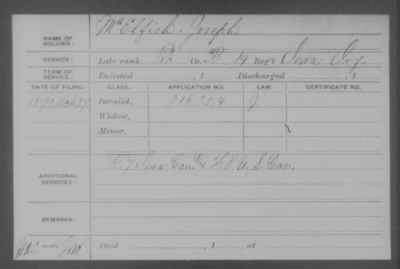 NAME OF SOLDIER: McElfish, Joseph
SERVICE: Late rank, Pvt Co. B, 14 Reg't Iowa Inf.
TERM OF SERVICE: Enlisted , 1 Discharged , 1
DATE OF FILING. CLASS. APPLICATION NO. LAW. CERTIFICATE NO.
1879 Invalid, 318,324
Widow,
Minor,
ADDITIONAL SERVICES: K, 7 Iowa Cav. & U.S.
REMARKS:
Died , 1 , at